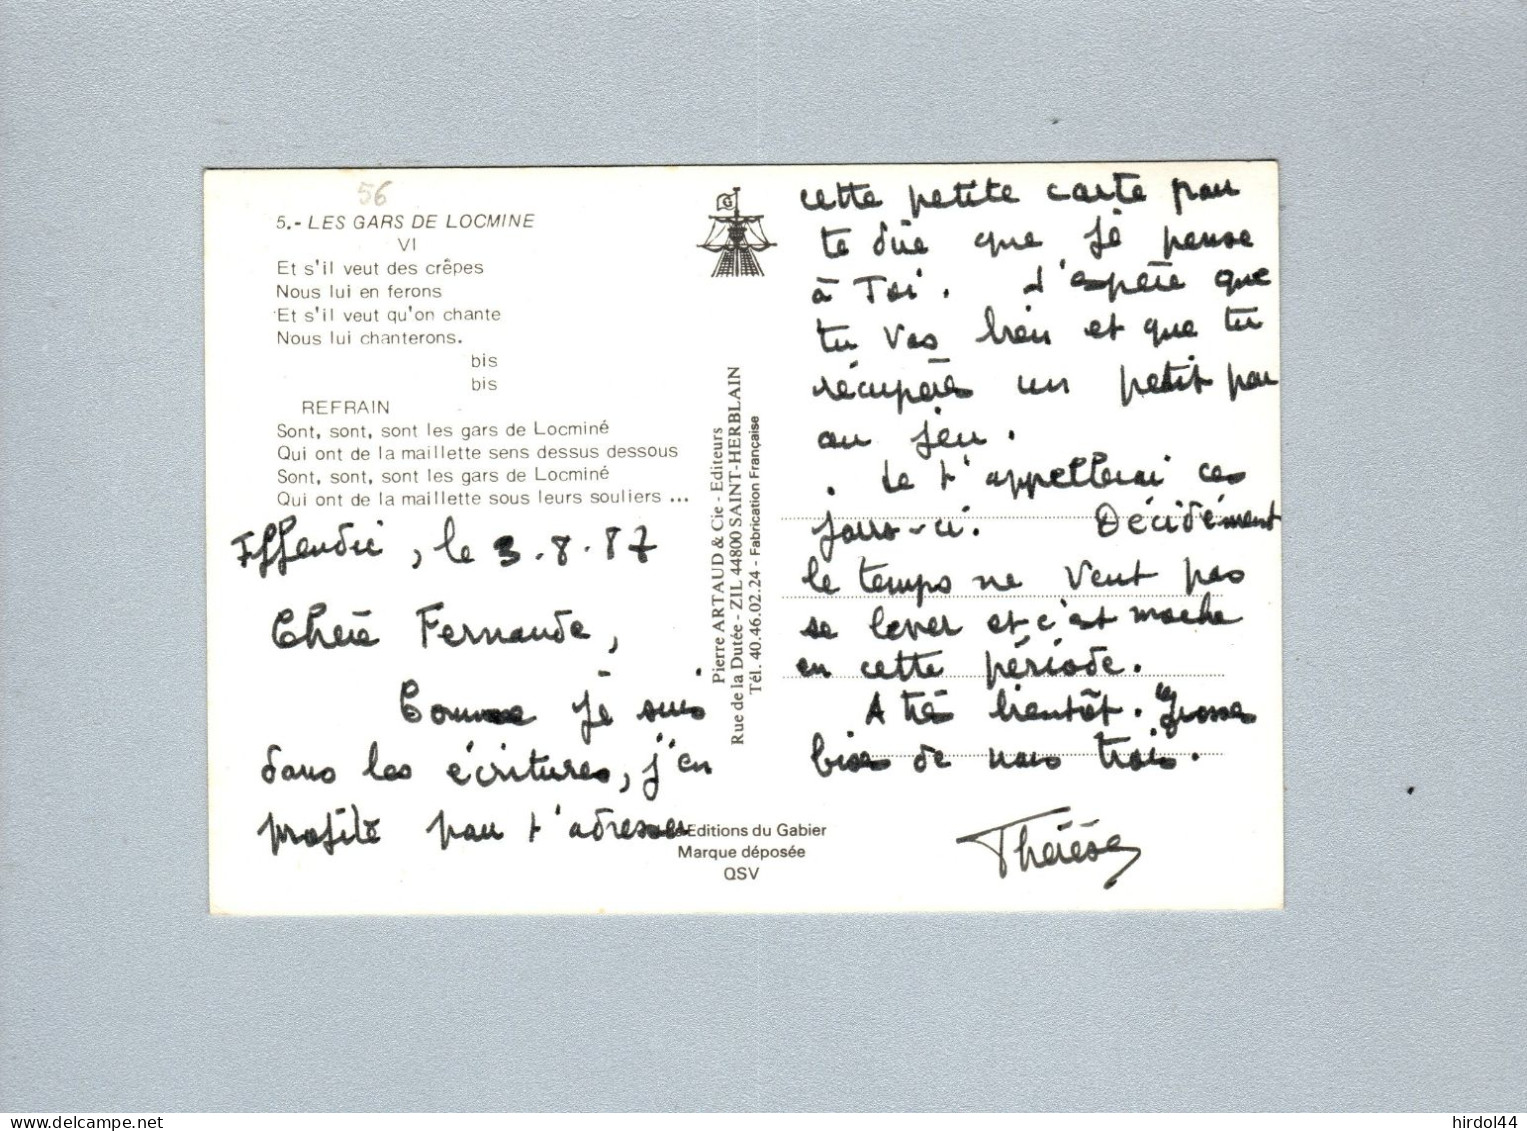 56
5.- LES GARS DE LOCMINE
VI
Et s'il veut des crêpes
Nous lui en ferons
Et s'il veut qu'on chante
Nous lui chanterons.
bis
bis
REFRAIN
Sont, sont, sont les gars de Locminé
Qui ont de la maillette sens dessus dessous
Sont, sont, sont les gars de Locminé
Qui ont de la maillette sous leurs souliers ...
Iffendic, le 3.8.87
Chère Fernande,
Comme je suis
dans les écritures, j'en
profite pour t'adresser
Pierre ARTAUD & Cie - Editeurs
Rue de la Dutée - ZIL 44800 SAINT-HERBLAIN
Tél. 40.46.02.24 - Fabrication Française
Editions du Gabier
Marque déposée
QSV
cette petite carte pour
te dire que je pense
à Toi. J'espère que
tu vas bien et que tu
récupères un petit peu
au jeu.
. Je t'appellerai ces
jours-ci. Décidément
le temps ne veut pas
se lever et c'est moche
en cette période.
A très bientôt. Grosses
bises de nous trois.
Thérèse
delcampe.net
hirdol44